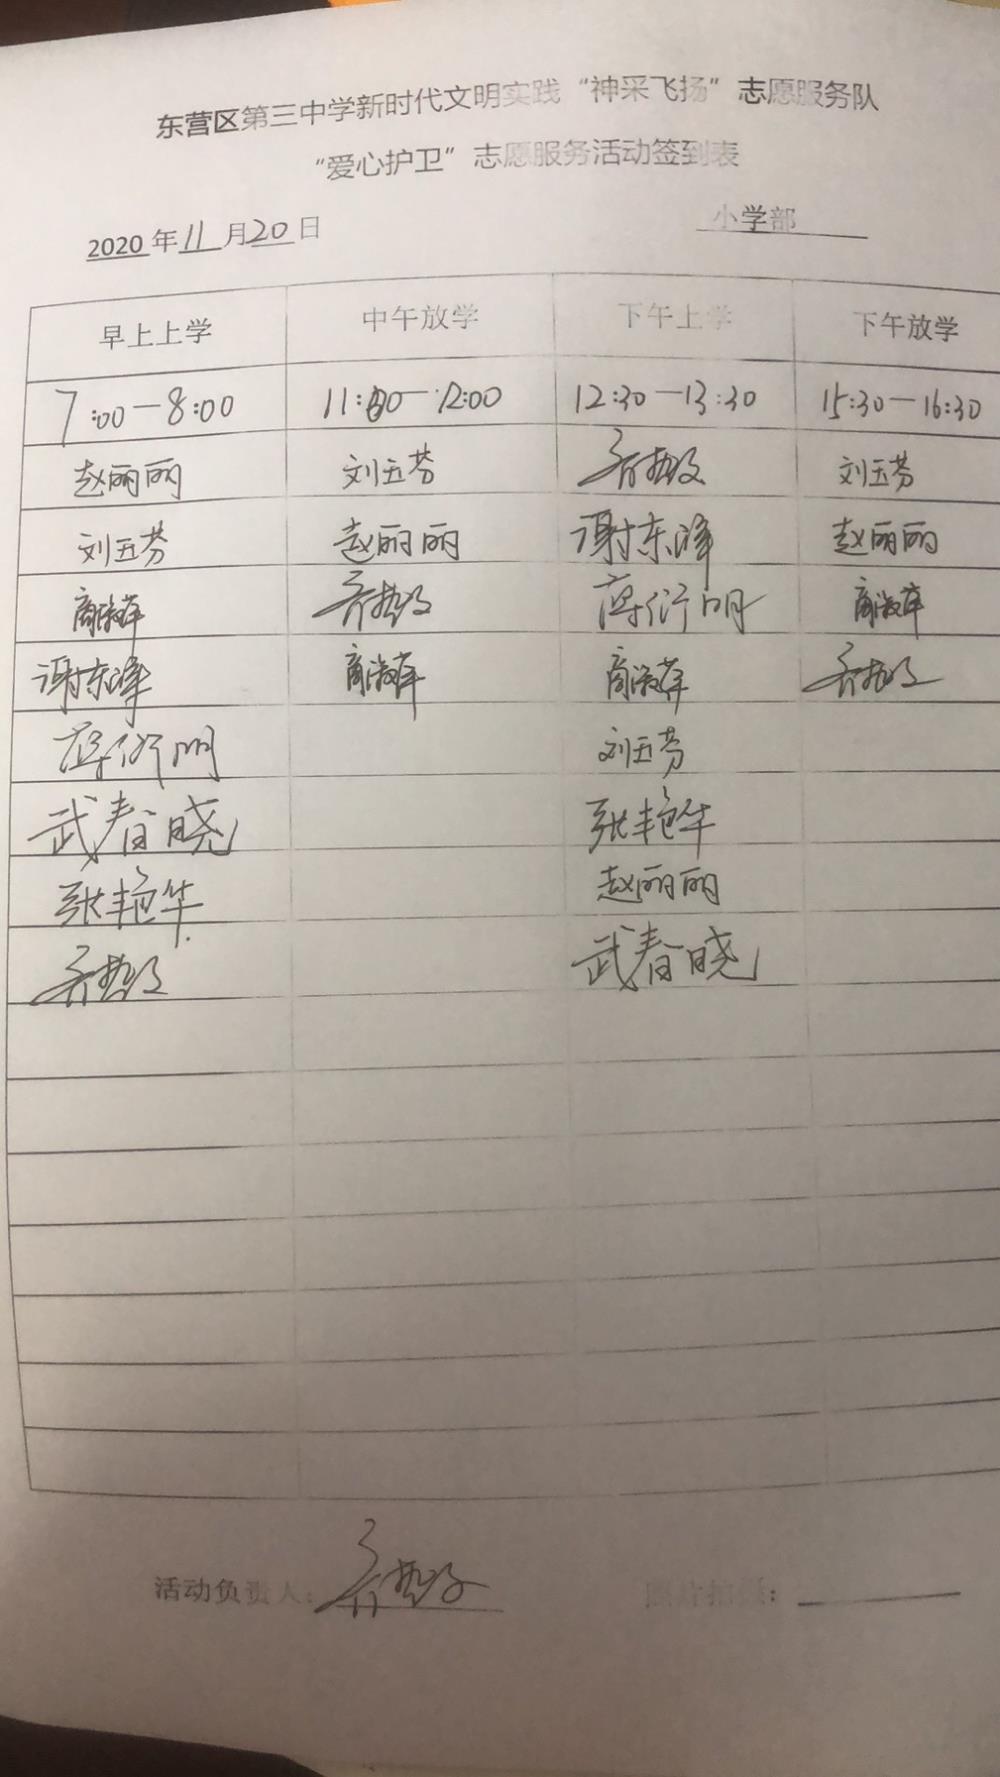 东营区第三中学新时代文明实践“神采飞扬”志愿服务队
“爱心护卫”志愿服务活动签到表
2020年11月20日 小学部
早上上学 中午放学 下午上学 下午放学
7:00—8:00 11:00—12:00 12:30—13:30 15:30—16:30
赵丽丽 刘玉芬 刘玉芬
刘玉芬 赵丽丽 谢东峰 赵丽丽
商淑萍 薛衍明 商淑萍
谢东峰 商淑萍 商淑萍
薛衍明 刘玉芬
武春晓 张艳华
张艳华 赵丽丽
武春晓
活动负责人：